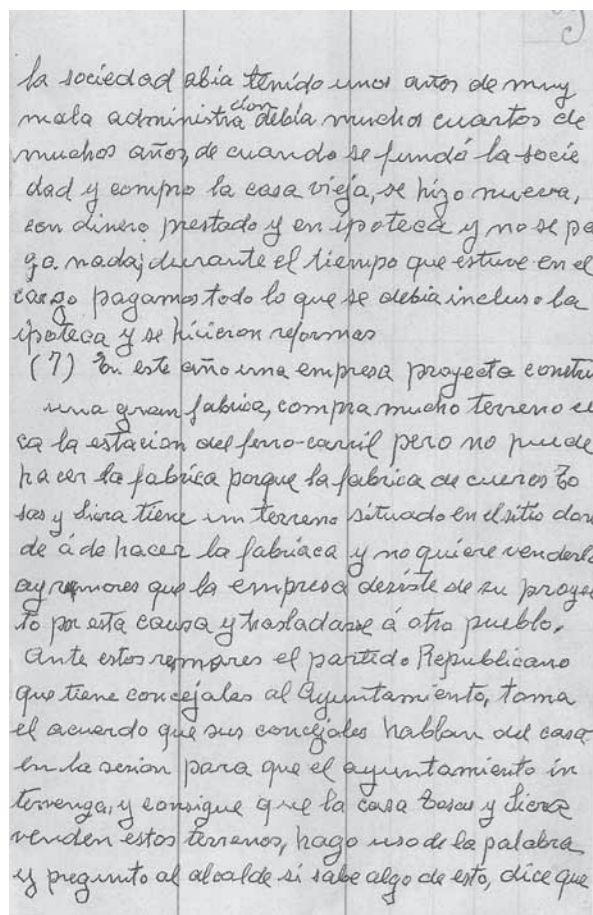 la sociedad abia tenido unos años de muy
mala administracion debia muchos cuartos de
muchos años, de cuando se fundó la socie
dad y compro la casa vieja, se hizo nueva,
con dinero prestado y en ipoteca y no se pa
go. nada; durante el tiempo que estuve en el
cargo pagamos todo lo que se debia incluso la
ipoteca y se hicieron reformas
(7) En este año una empresa proyecta constru
una gran fabrica, compra mucho terreno ce
ca la estacion del ferro-carril pero no puede
hacer la fabrica porque la fabrica de cueros To
sas y Siera tiene un terreno situado en el sitio don
de á de hacer la fabriaca y no quiere venderlo
ay rumores que la empresa desiste de su proyec
to por esta causa y trasladarse á otro pueblo.
Ante estos rumores el partido Republicano
que tiene concejales al Ayuntamiento, toma
el acuerdo que sus concejales hablan del caso
en la sesion para que el ayuntamiento in
tervenga, y consigue que la casa Tosas y Siera
venden estos terrenos, hago uso de la palabra
y pregunto al alcalde si sabe algo de esto, dice que